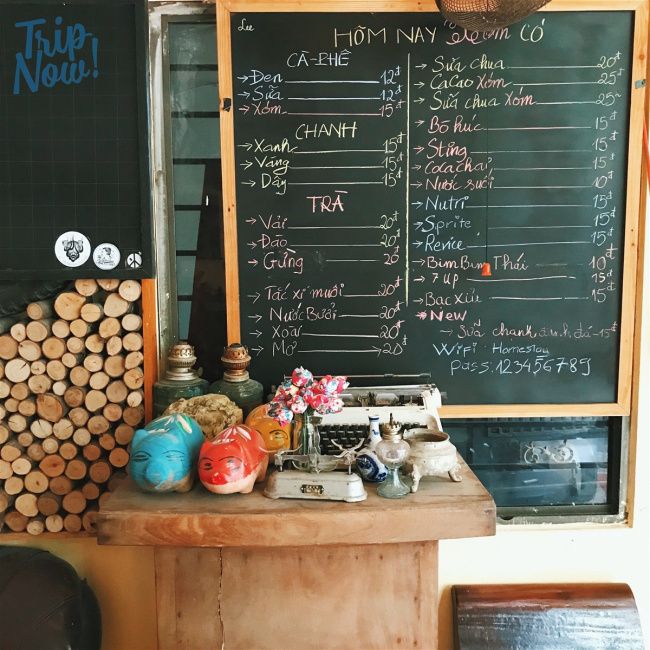 Trip
Now!
Lee
HÔM NAY Xóm CÓ
CÀ-PHÊ
→ Đen 12đ
→ Sữa 12đ
→ Xóm 15đ
CHANH
→ Xanh 15đ
→ Vàng 15đ
→ Dây 15đ
TRÀ
→ Vải 20đ
→ Đào 20đ
→ Gừng 20
→ Tắc xí muội 20đ
→ Nước Bưởi 20đ
→ Xoài 20đ
→ Mơ 20đ
→ Sữa chua 20đ
→ CaCao Xóm 25đ
→ Sữa chua Xóm 25
→ Bò húc 15đ
→ Sting 15đ
→ Coca chai 15đ
→ Nước suối 10đ
→ Nutri 15đ
→ Sprite 15đ
→ Revice 15đ
→ Bim Bim Thái 10đ
→ 7 Up 15đ
→ Bạc Xỉu 15đ
* New
→ Sữa chanh đá 15đ
WiFi : Homestay
Pass: 123456789